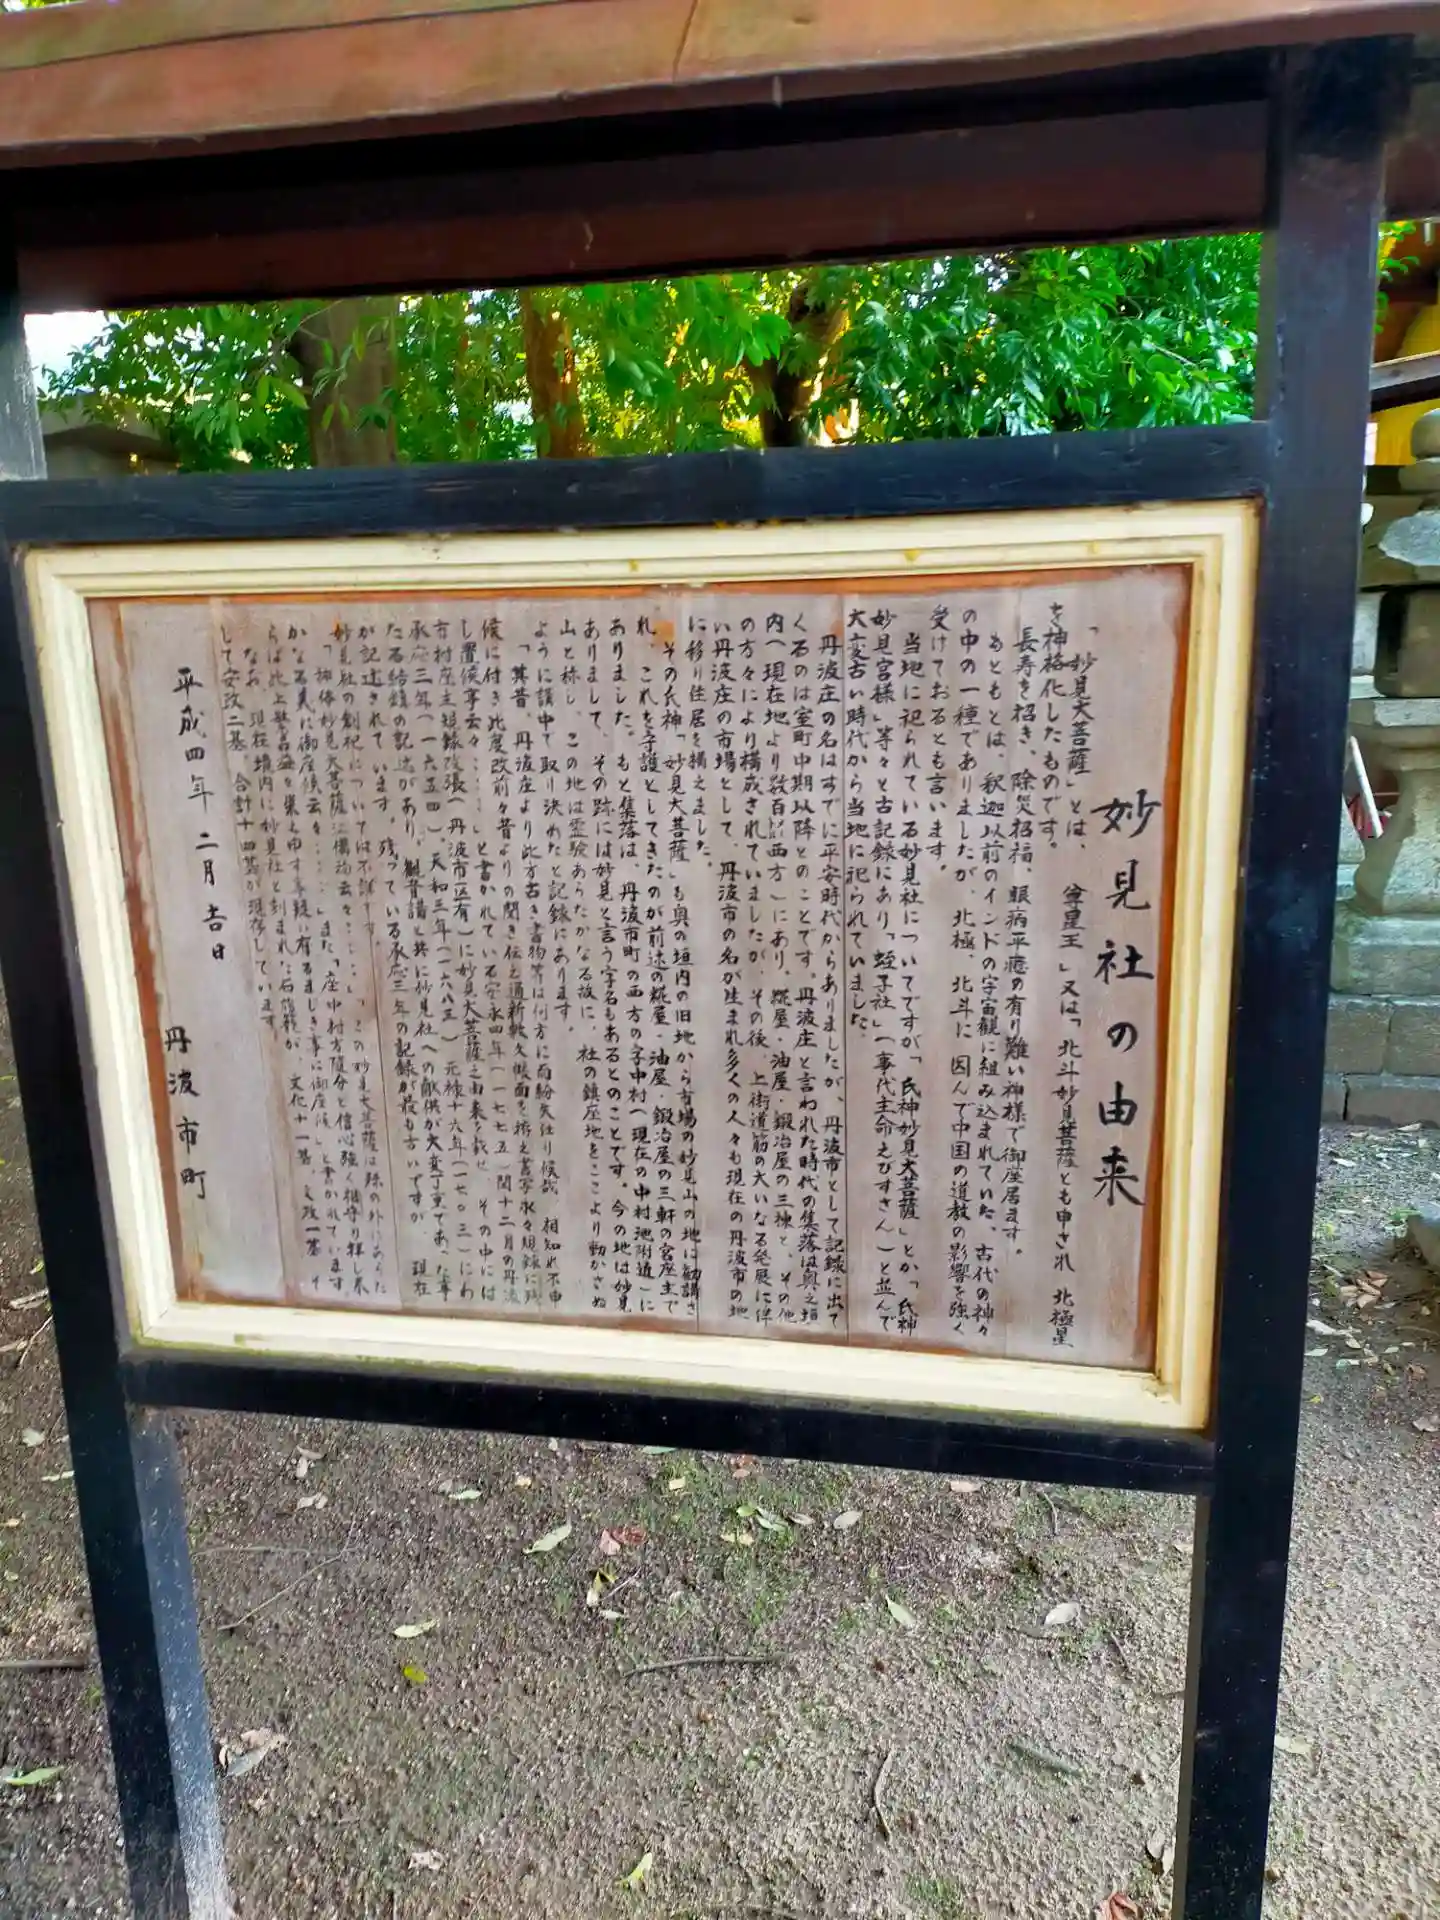 妙見社の由来
「妙見大菩薩」とは、「尊星王」又は「北斗妙見菩薩」とも申され 北極星
を神格化したものです。
長寿を招き、除災招福、眼病平癒の有り難い神様で御座居ます。
もともとは、釈迦以前のインドの宇宙観に組み込まれていた、古代の神々
の中の一種でありましたが、北極、北斗に因んで中国の道教の影響を強く
受けておるとも言います。
当地に祀られている妙見社についてですが、「氏神妙見大菩薩」とか「氏神
妙見宮様」等々と古記録にあり、「蛭子社」(事代主命えびすさん)と並んで
大変古い時代から当地に祀られていました。
丹波庄の名はすでに平安時代からありましたが、丹波市として記録に出て
くるのは室町中期以降とのことです。丹波庄と言われた時代の集落は奥之垣
内(現在地より数百㍍西方)にあり、糀屋・油屋・鍛冶屋の三棟と、その他
の方々により構成されていましたが、その後、上街道筋の大いなる発展に伴
い丹波庄の市場として、丹波市の名が生まれ多くの人々も現在の丹波市の地
に移り住居を構えました。
その氏神「妙見大菩薩」も奥の垣内の旧地から市場の妙見山の地に勧請さ
れ、これを守護としてきたのが前述の糀屋・油屋・鍛冶屋の三軒の宮座主で
ありました。もと集落は、丹波市町の西方の字中村(現在の中村池附近)に
ありまして、その跡には妙見と言う字名もあるとのことです。今の地は妙見
山と称し、この地は霊験あらたかなる故に、社の鎮座地をここより動かさぬ
ように講中で取り決めたと記録にあります。
「其昔、丹波座より此方古き書物等は何方に而紛失仕り候哉 相知れ不申
候に付き此度改前々昔よりの聞き伝え通新敷久帳面を拵え書写永々規録に残
し置候事云々……」と書かれている安永四年(一七七五)閏十二月の丹波
市村座主規録改張(丹波市区有)に妙見大菩薩之由来を載せ、その中には
承応三年(一六五四)、天和三年(一六八三) 元禄十六年(一七〇三)にわ
たる結鎮の記述があり、観音講と共に妙見社への献供が大変丁重であった事
が記述されています。残っている承応三年の記録が最も古いですが 現在
妙見社の創祀については不詳です。
かなる義に御座候云々……」また「座中村方随分と信心強く相守り拝し奉
らば此上繁昌益を集む申す事疑い有るまじき事に御座候」と書かれています。
なお、現在境内に妙見社と刻まれた石燈籠が、文化十一基、文政一基 そ
して安政二基、合計十四基が現存しています。
平成四年二月吉日
丹波市町